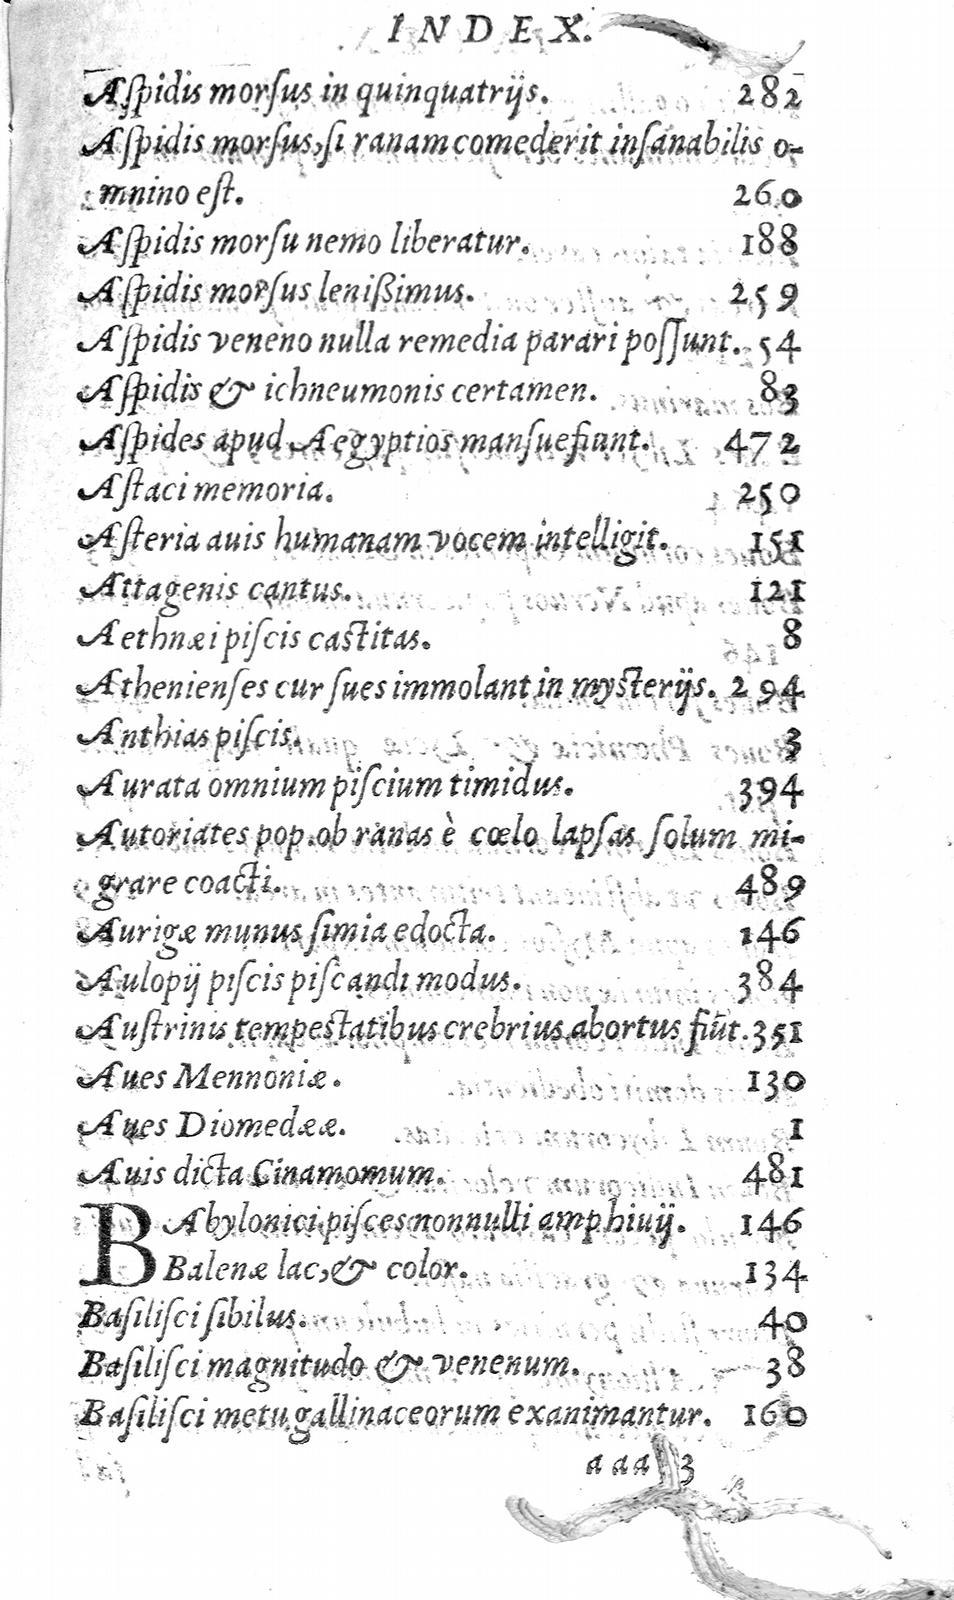 INDEX.
Aſpidis morſus in quinquatrijs. 282
Aſpidis morſus, ſi ranam comederit inſanabilis o-
mnino eſt. 260
Aſpidis morſu nemo liberatur. 188
Aſpidis morſus leniſsimus. 259
Aſpidis veneno nulla remedia parari poſſunt. 54
Aſpidis & ichneumonis certamen. 83
Aſpides apud Aegyptios manſuefiunt. 472
Aſtaci memoria. 250
Aſteria auis humanam vocem intelligit. 151
Attagenis cantus. 121
Aethnæi piſcis caſtitas. 8
Athenienſes cur ſues immolant in myſterijs. 294
Anthias piſcis. 3
Aurata omnium piſcium timidus. 394
Autoriates pop. ob ranas è cœlo lapſas ſolum mi-
grare coacti. 489
Aurigæ munus ſimia edocta. 146
Aulopij piſcis piſcandi modus. 384
Auſtrinis tempeſtatibus crebrius abortus fiūt. 351
Aues Mennoniæ. 130
Aues Diomedææ. 1
Auis dicta Cinamomum. 481
BAbylonici piſces nonnulli amphiuij. 146
Balenæ lac, & color. 134
Baſiliſci ſibilus. 40
Baſiliſci magnitudo & venenum. 38
Baſiliſci metu gallinaceorum exanimantur. 160
aaa 3